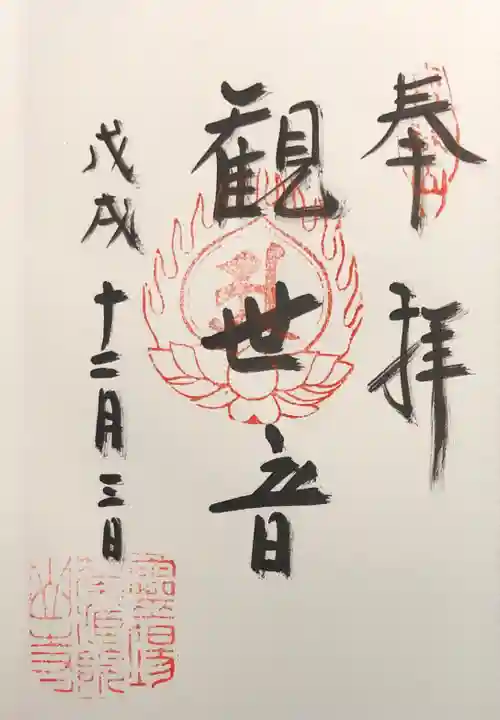 奉拝
観世音
戊戌 十二月三日